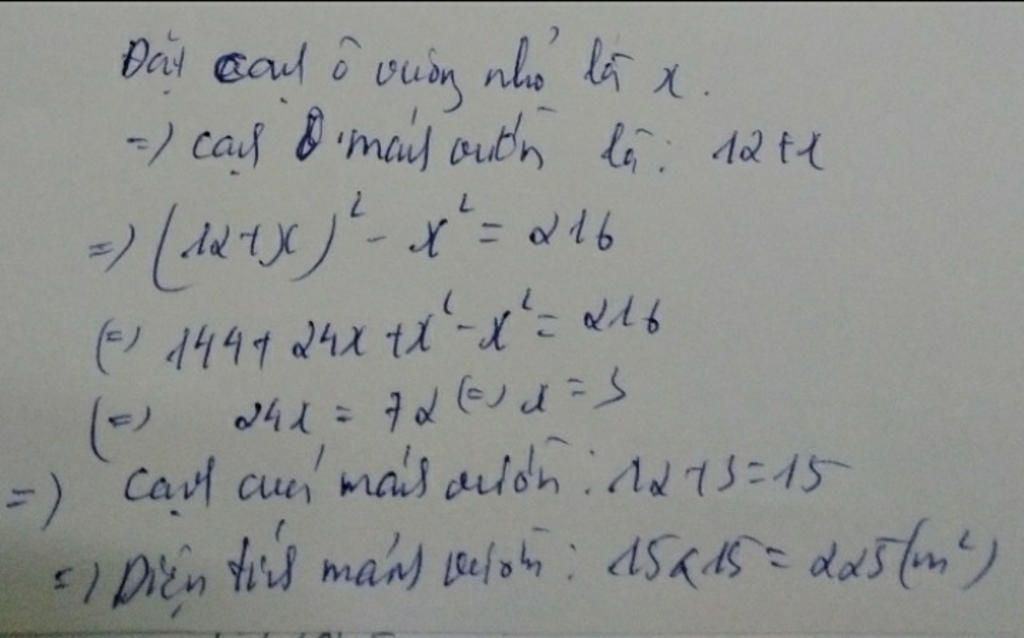 Đặt cạnh ô vuông nhỏ là x.
=) cạnh mảnh vườn là: 12+x
=) (12+x)² - x² = 216
(=) 144+ 24x +x² - x² = 216
(=) 24x = 72 (=) x = 3
=) Cạnh của mảnh vườn: 12+3=15
=) Diện tích mảnh vườn: 15x15= 225(m²)